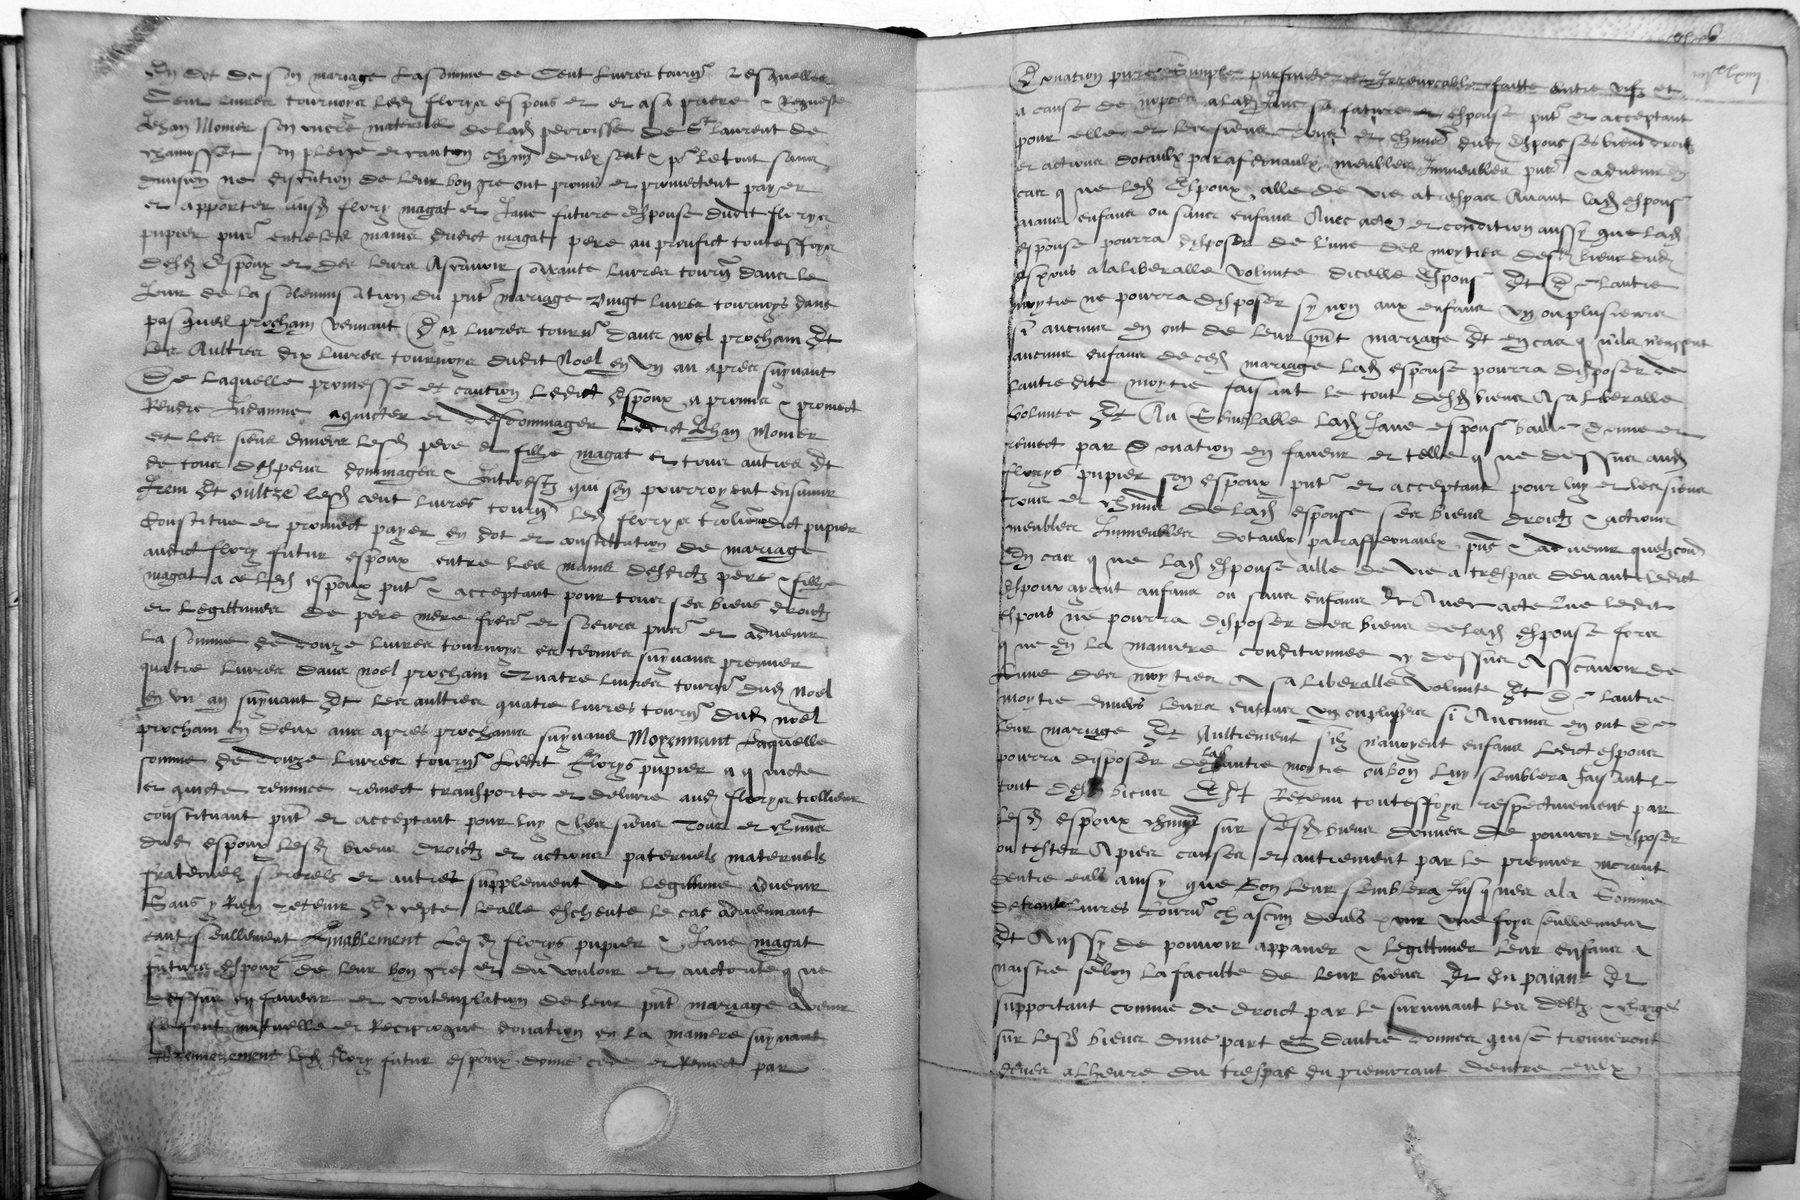 En dot de son mariage la somme de Cent livres tourn͂ Lesquelles
Cent livres tournoys led͂ florys espous et et a sa priere & Requeste
Jehan Momer son oncle maternel de lad͂ perroisse de St laurent de
chamosset son pleige et caution chũn deulx seul & pr le tout sans
division ne discution de leur bon gre ont promis et promectent payer
et apporter ausd͂ flory magat et Jane future espouse dudit florys
pupier pnt͂ entre les mains dudict magat pere au proufict toutesfoys
desd͂ Espoux et des leurs Ascavoir soixante livres tourn͂ dans le
Jour de la solempnisation du pnt͂ mariage vingt livres tournoys dans
pasques prochain venant dix livres tourn͂ dans noel prochain Et
les Aultres dix livres tournoys dudit Noel en vn an apres suyvant
De laquelle promesse et caution ledict Espoux a promis & promect
Rendre Indamne aquicter et desdommager ledict Jehan Momer
et les siens envers lesd͂ pere et fille magat et tous autres Et
de tous despens dommages & Interestz qui sen pourroyent ensuivre
Item Et oultre lesd͂ cent livres tourn͂ led͂ florys dict pupier
Constitue et promect payer en dot et constitution de mariage
audict flory futur espoux entre les mains desdictz pere & fille
magat a ce led͂ espoux pnt͂ & acceptant pour tous ses biens droictz
et legittimes de pere mere freres et soeurs pns͂ et advenir
La somme de douze livres tournoys es termes suyvans premier
quatre livres dans noel prochain Quatre livres tourn͂ dud͂ noel
en vn an suyvant Et les aultres quatre livres tourn͂ dud͂ noel
prochain en deux ans apres prochains suyvans Moyennant Laquelle
somme de douze livres tourn͂ Ledit Florys pupier a quicte
et quicte renunce remect transporte et delivre aud͂ florys
constituant pnt͂ et acceptant pour luy & les siens Tous et chũns
dud͂ espoux lesd͂ biens droictz et actions paternels maternels
fraternelz sororels et autres supplement de legittime advenir
Sans y Rien retenir Excepte lealle escheute le cas advenant
tant seullement Semblablement Lesd͂ florys pupier & Jane magat
futurs espoux de leur bon gres et du vouloir et auctorite que
dessus en faveur et contemplation de leur pnt͂ mariage advenir
se font mutuelle et Reciproque donation en la maniere suyvant
Premierement led͂ flory futur espoux donne cede et Remect par
Donation pure simple parfaicte et Irrevocable faicte entre vifz et
a cause de nopces a lad͂ Jane sa future espouse pnt͂ et acceptant
pour elle et les siens Tous et chũns dud͂ Espoux ses biens droitz
et actions dotaulx parafernaulx meubles Immeubles pns͂ & advenir En
cas que led͂ Espoux alle de vie a trespas Avant lad͂ espouse
ayans enfans ou sans enfans Avec acte et condition aussy que lad͂
espouse pourra disposer de l'une des moyties desd͂ biens dud͂
espous a la liberalle volunte dicelle Espouse Et De lautre
moytie ne pourra disposer sy non aux enfans vn ou plusieurs
si aucuns en ont de leur pnt͂ mariage Et en cas quilz n'eussent
aucuns enfans de ced͂ mariage lad͂ espouse pourra disposer de
lautre dite moytie faisant le tout desd͂ biens A sa liberalle
Volunte Et Au Semblable lad͂ Jane espouse baille donne et
remect par Donation en faveur et telle que dessus aud͂
florys pupier son espoux pnt͂ et acceptant pour luy et les siens
tous et chũns de lad͂ espouse ses biens droictz & actions
meubles Immeubles dotaulx parafernaulx pns͂ & advenir quelzconq͂
En cas que lad͂ espouse aille de vie a trespas devant ledict
espoux ayant enfans ou sans enfans Et Avec acte Que ledit
espous ne pourra disposer des biens de lad͂ espouse fors
que en la maniere conditionnee cy dessus Asscavoir de
lune des moyties A sa liberalle volunte Et De lautre
moytie envers leurs enfans vn ou plusieurs si Aucuns en ont de
leur mariage Et Aultrement s'ilz n'avoyent enfans Ledict espoux
pourra disposer de lad͂ autre moytie ou bon luy semblera faisant
tout desd͂ biens Est Retenu toutesfoys respectivement par
lesd͂ espoux chũn sur sesd͂ biens donnes de pouvoir disposer
ou tester A pies causes et autrement par le premier morant
dentre eulx ainsy que bon leur semblera Jusques a la Somme
de trante livres tourn͂ chascun deulx pour une foys seullement
Et Aussy de pouvoir appaner & legittimer leur enfans a
naistre selon la faculte de leur biens Et En paiant Et
supportant comme de droict par le survivant les debtz & charges
sur lesd͂ biens dune part & dautre donnes qui se trouveront
deues a lheure du trespas du premorant dentre eulx